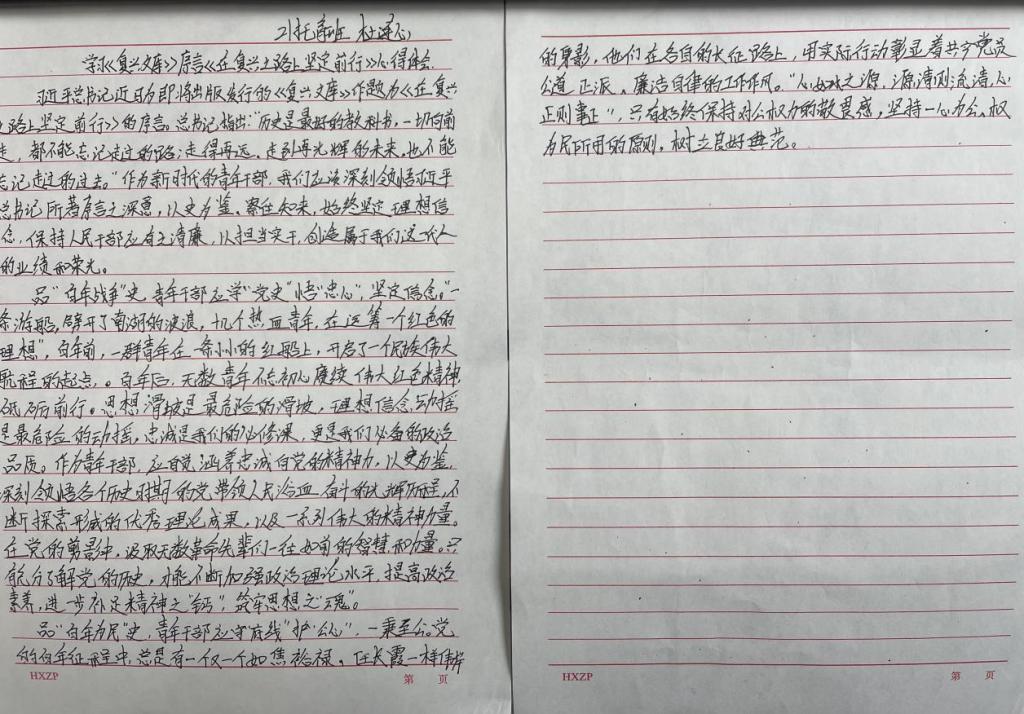 21托育班
学习《复兴文库》序言《在复兴之路上坚定前行》心得体会
习近平总书记近日为即将出版发行的《复兴文库》作题为《在复兴
之路上坚定前行》的序言。总书记指出:"历史是最好的教科书,一切向前
走,都不能忘记走过的路;走得再远、走到再光辉的未来,也不能
忘记走过的过去。"作为新时代的青年干部,我们应该深刻领悟习近平
总书记所著序言之深意,以史为鉴、察往知来,始终坚定理想信
念,保持人民干部应有之清廉,以担当实干,创造属于我们这代人
的业绩和荣光。
品"百年战争"史,青年干部应学"党史"悟"忠心",坚定信念。"一
条游船,劈开了南湖的波浪,十几个热血青年,在运筹一个红色的
理想",百年前,一群青年在一条小小的红船上,开启了一个民族伟大
航程的起点。百年后,无数青年不忘初心赓续伟大红色精神,
砥砺前行。思想滑坡是最危险的滑坡,理想信念动摇
是最危险的动摇,忠诚是我们的必修课,更是我们必备的政治
品质。作为青年干部,应自觉涵养忠诚向党的精神力,以史为鉴,
深刻领悟各个历史时期的党带领人民浴血奋斗的光辉历程,不
断探索形成的优秀理论成果,以及一系列伟大的精神力量。
在党的剪影中,汲取无数革命先辈们一往如前的智慧和力量。只
能充分了解党的历史,才能不断加强政治理论水平,提高政治
素养,进一步补足精神之"钙",筑牢思想之"魂"。
品"百年为民"史,青年干部应守底线"护"公心",一秉至公。党
的百年征程中,总是有一仅一个如焦裕禄、任长霞一样伟岸
HXZP 第 页
的身影,他们在各自的长征路上,用实际行动彰显着共产党员
公道正派、廉洁自律的工作作风。"心如水之源,源清则流清,心
正则事正",只有始终保持对公权力的敬畏感,坚持一心为公,权
为民所用的原则,树立良好典范。
HXZP 第 页